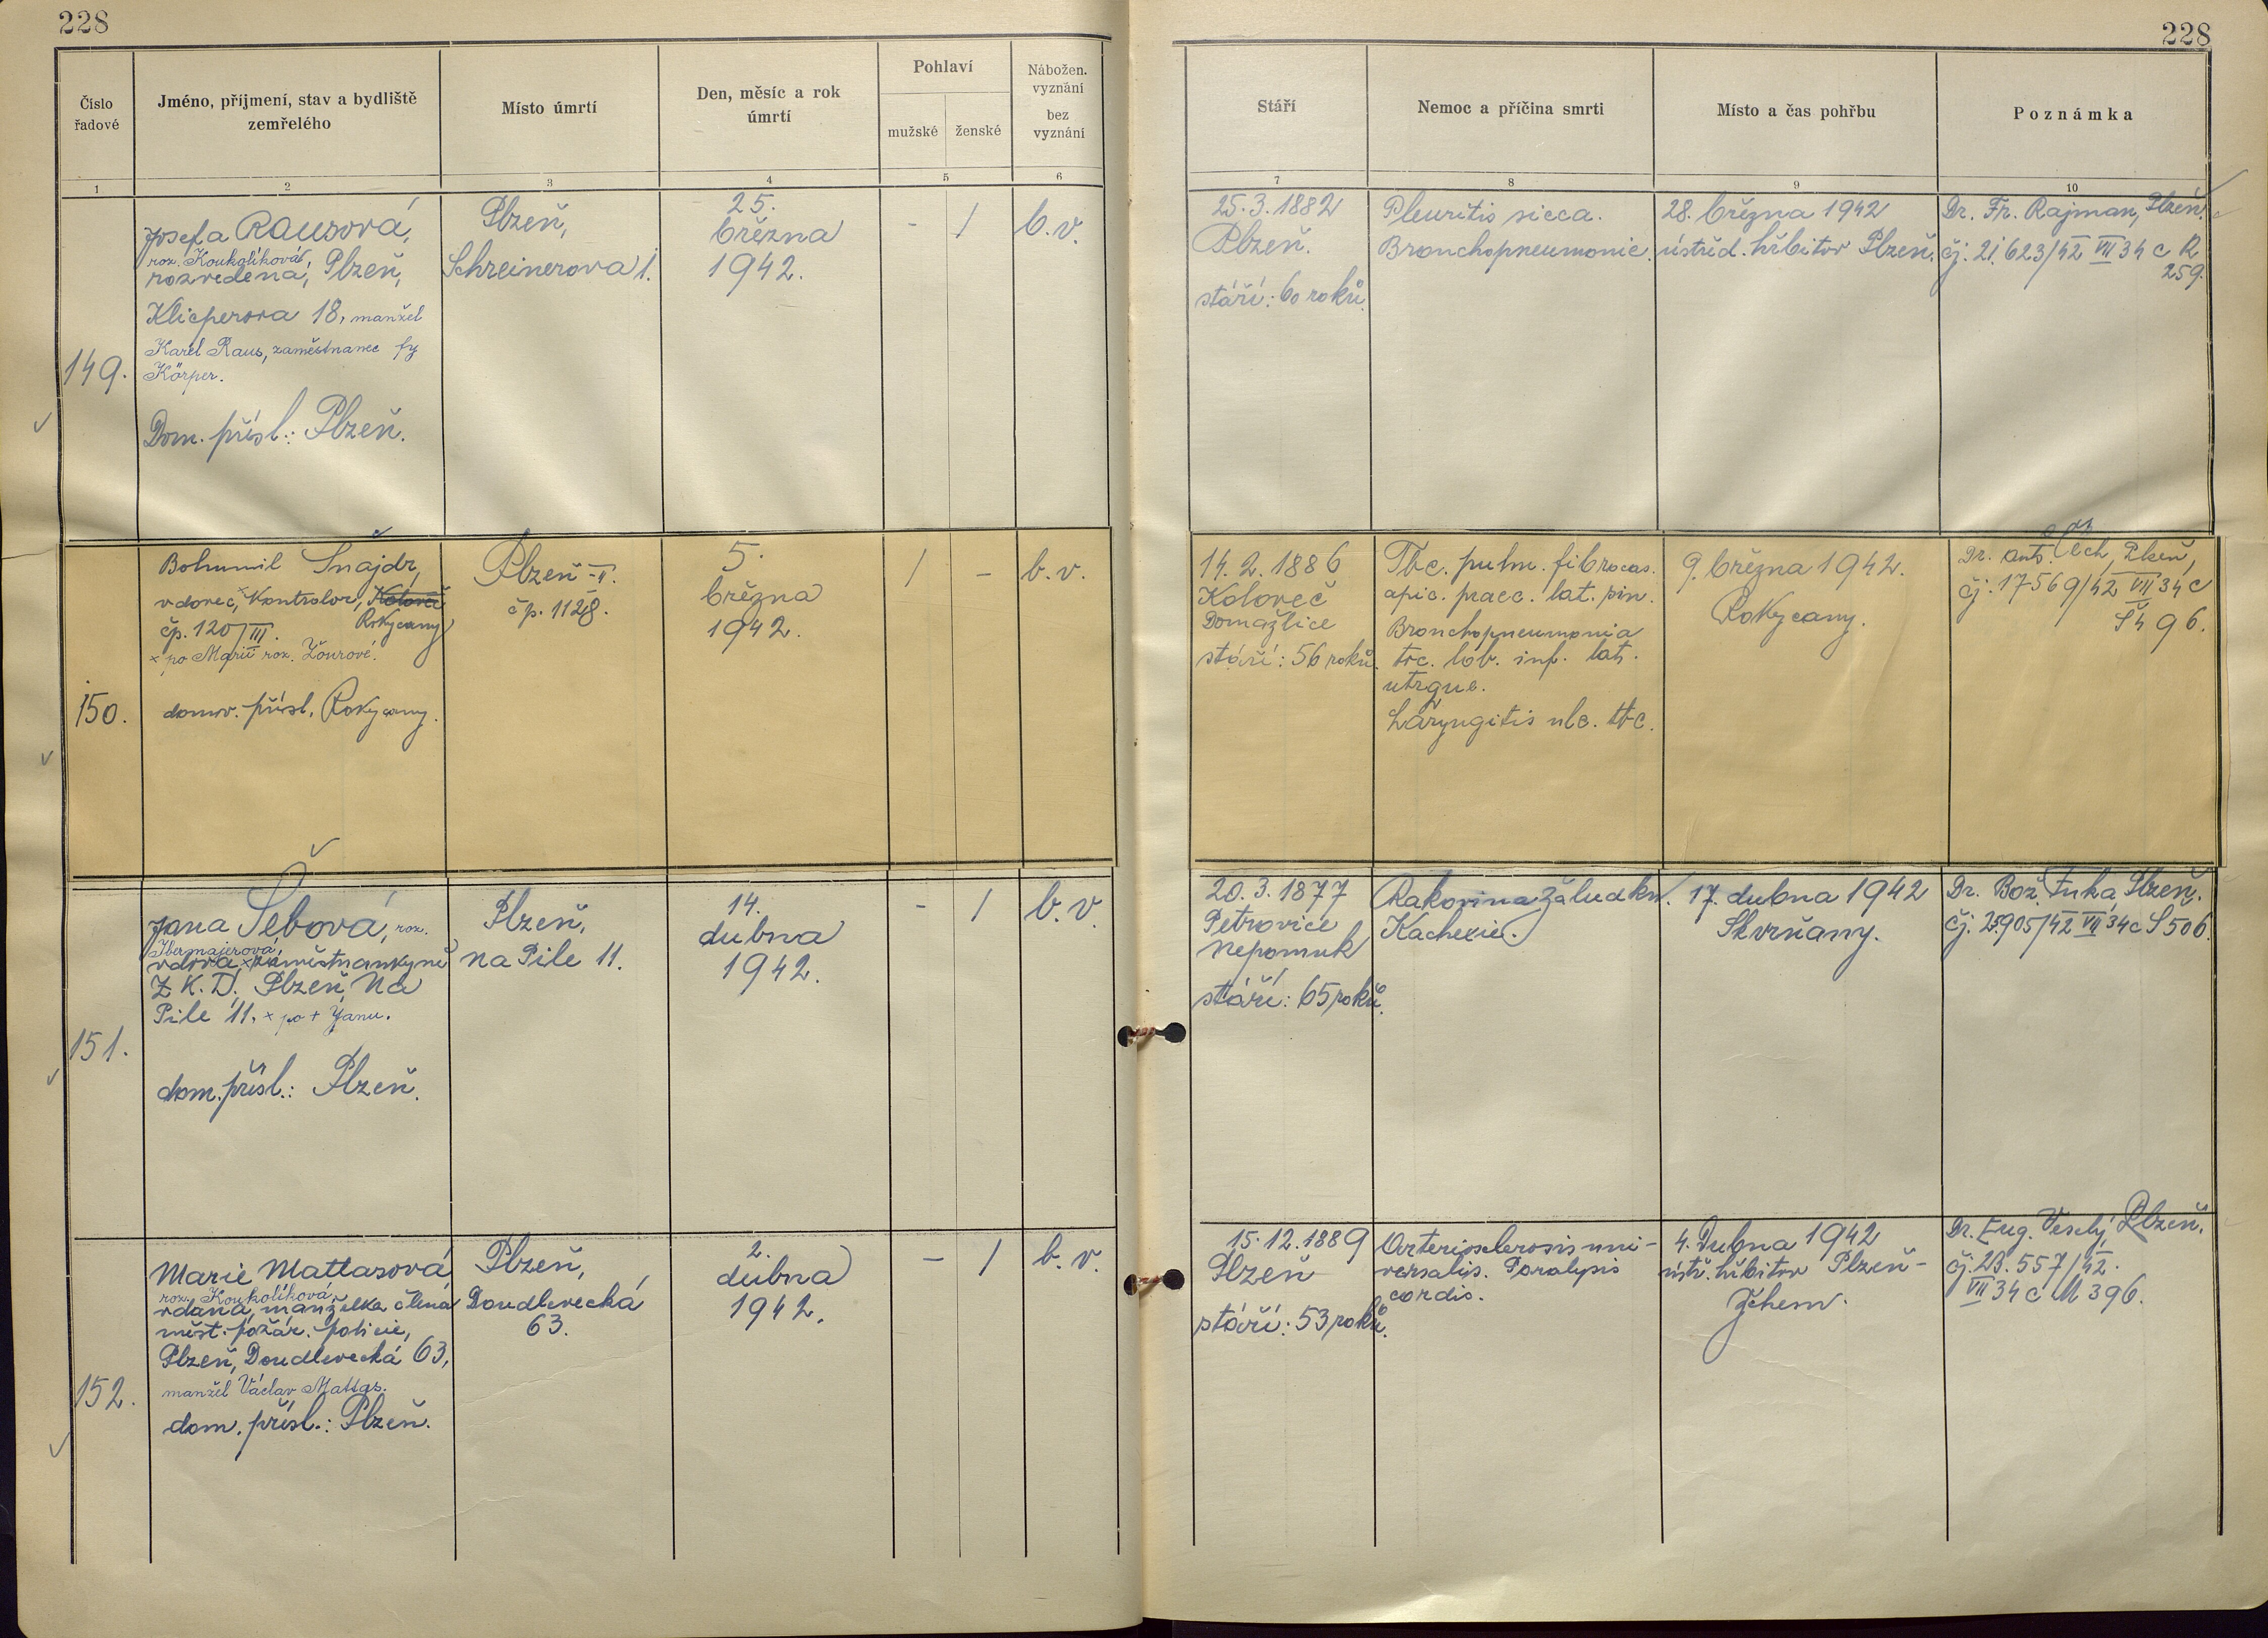 228
228
Číslo řadové
Jméno, příjmení, stav a bydliště zemřelého
Místo úmrtí
Den, měsíc a rok úmrtí
Pohlaví
mužské
ženské
Nábožen. vyznání
bez vyznání
1
2
3
4
5
6
Stáří
Nemoc a příčina smrti
Místo a čas pohřbu
Poznámka
7
8
9
10
149.
Josefa Rausová,
roz. Koukolíková,
rozvedená, Plzeň,
Klicperova 18, manžel
Karel Raus, zaměstnanec fy
Körper.
Dom. přísl.: Plzeň.
Plzeň,
Schreinerova 1.
25.
března
1942.
- / b.v.
25.3.1882
Plzeň.
stáří: 60 roků.
Pleuritis sicca.
Bronchopneumonie.
28. března 1942
ústřed. hřbitov Plzeň.
Dr. Fr. Rajman, Plzeň.
čj. 21.623/42 VII 34 c R
259.
150.
Bohumil Šnajdr,
vdovec, × Kontrolor, Koloveč
Rokycany
čp. 120/III.
× po Marii roz. Žourové.
domov. přísl. Rokycany.
Plzeň-II.
čp. 1128.
5.
března
1942.
/ - b.v.
14.2.1886
Koloveč
Domažlice
stáří: 56 roků.
Tbc. pulm. fibrocas.
apic. praec. lat. sin.
Bronchopneumonia
tbc. lob. inf. lat.
utrque.
Laryngitis ulc. tbc.
9. března 1942.
Rokycany.
Dr. Ant. Čech, Plzeň,
čj. 17569/42 VII 34 c
Š 96.
151.
Jana Šebová, roz.
Ibermajerová,
vdova × zaměstnankyně
Z.K.D. Plzeň, Na
Pile 11, × po + Janu.
dom. přísl.: Plzeň.
Plzeň,
na Pile 11.
14.
dubna
1942.
- / b.v.
20.3.1877
Petrovice
Nepomuk
stáří: 65 roků.
Rakovina žaludku.
Kachexie.
17. dubna 1942
Skvrňany.
Dr. Bož. Fuka, Plzeň.
čj. 25905/42 VII 34 c Š 506.
152.
Marie Mattasová
roz. Koukolíková,
vdaná, manželka člena
měst. požár. policie,
Plzeň, Doudlevecká 63,
manžel Václav Mattas.
dom. přísl.: Plzeň.
Plzeň,
Doudlevecká
63.
2.
dubna
1942.
- / b.v.
15.12.1889
Plzeň
stáří: 53 roků.
Arteriosclerosis uni-
versalis. Paralysis
cordis.
4. Dubna 1942
ústř. hřbitov Plzeň-
žehem.
Dr. Eug. Veselý, Plzeň.
čj. 23.557/42.
VII 34 c M 396.